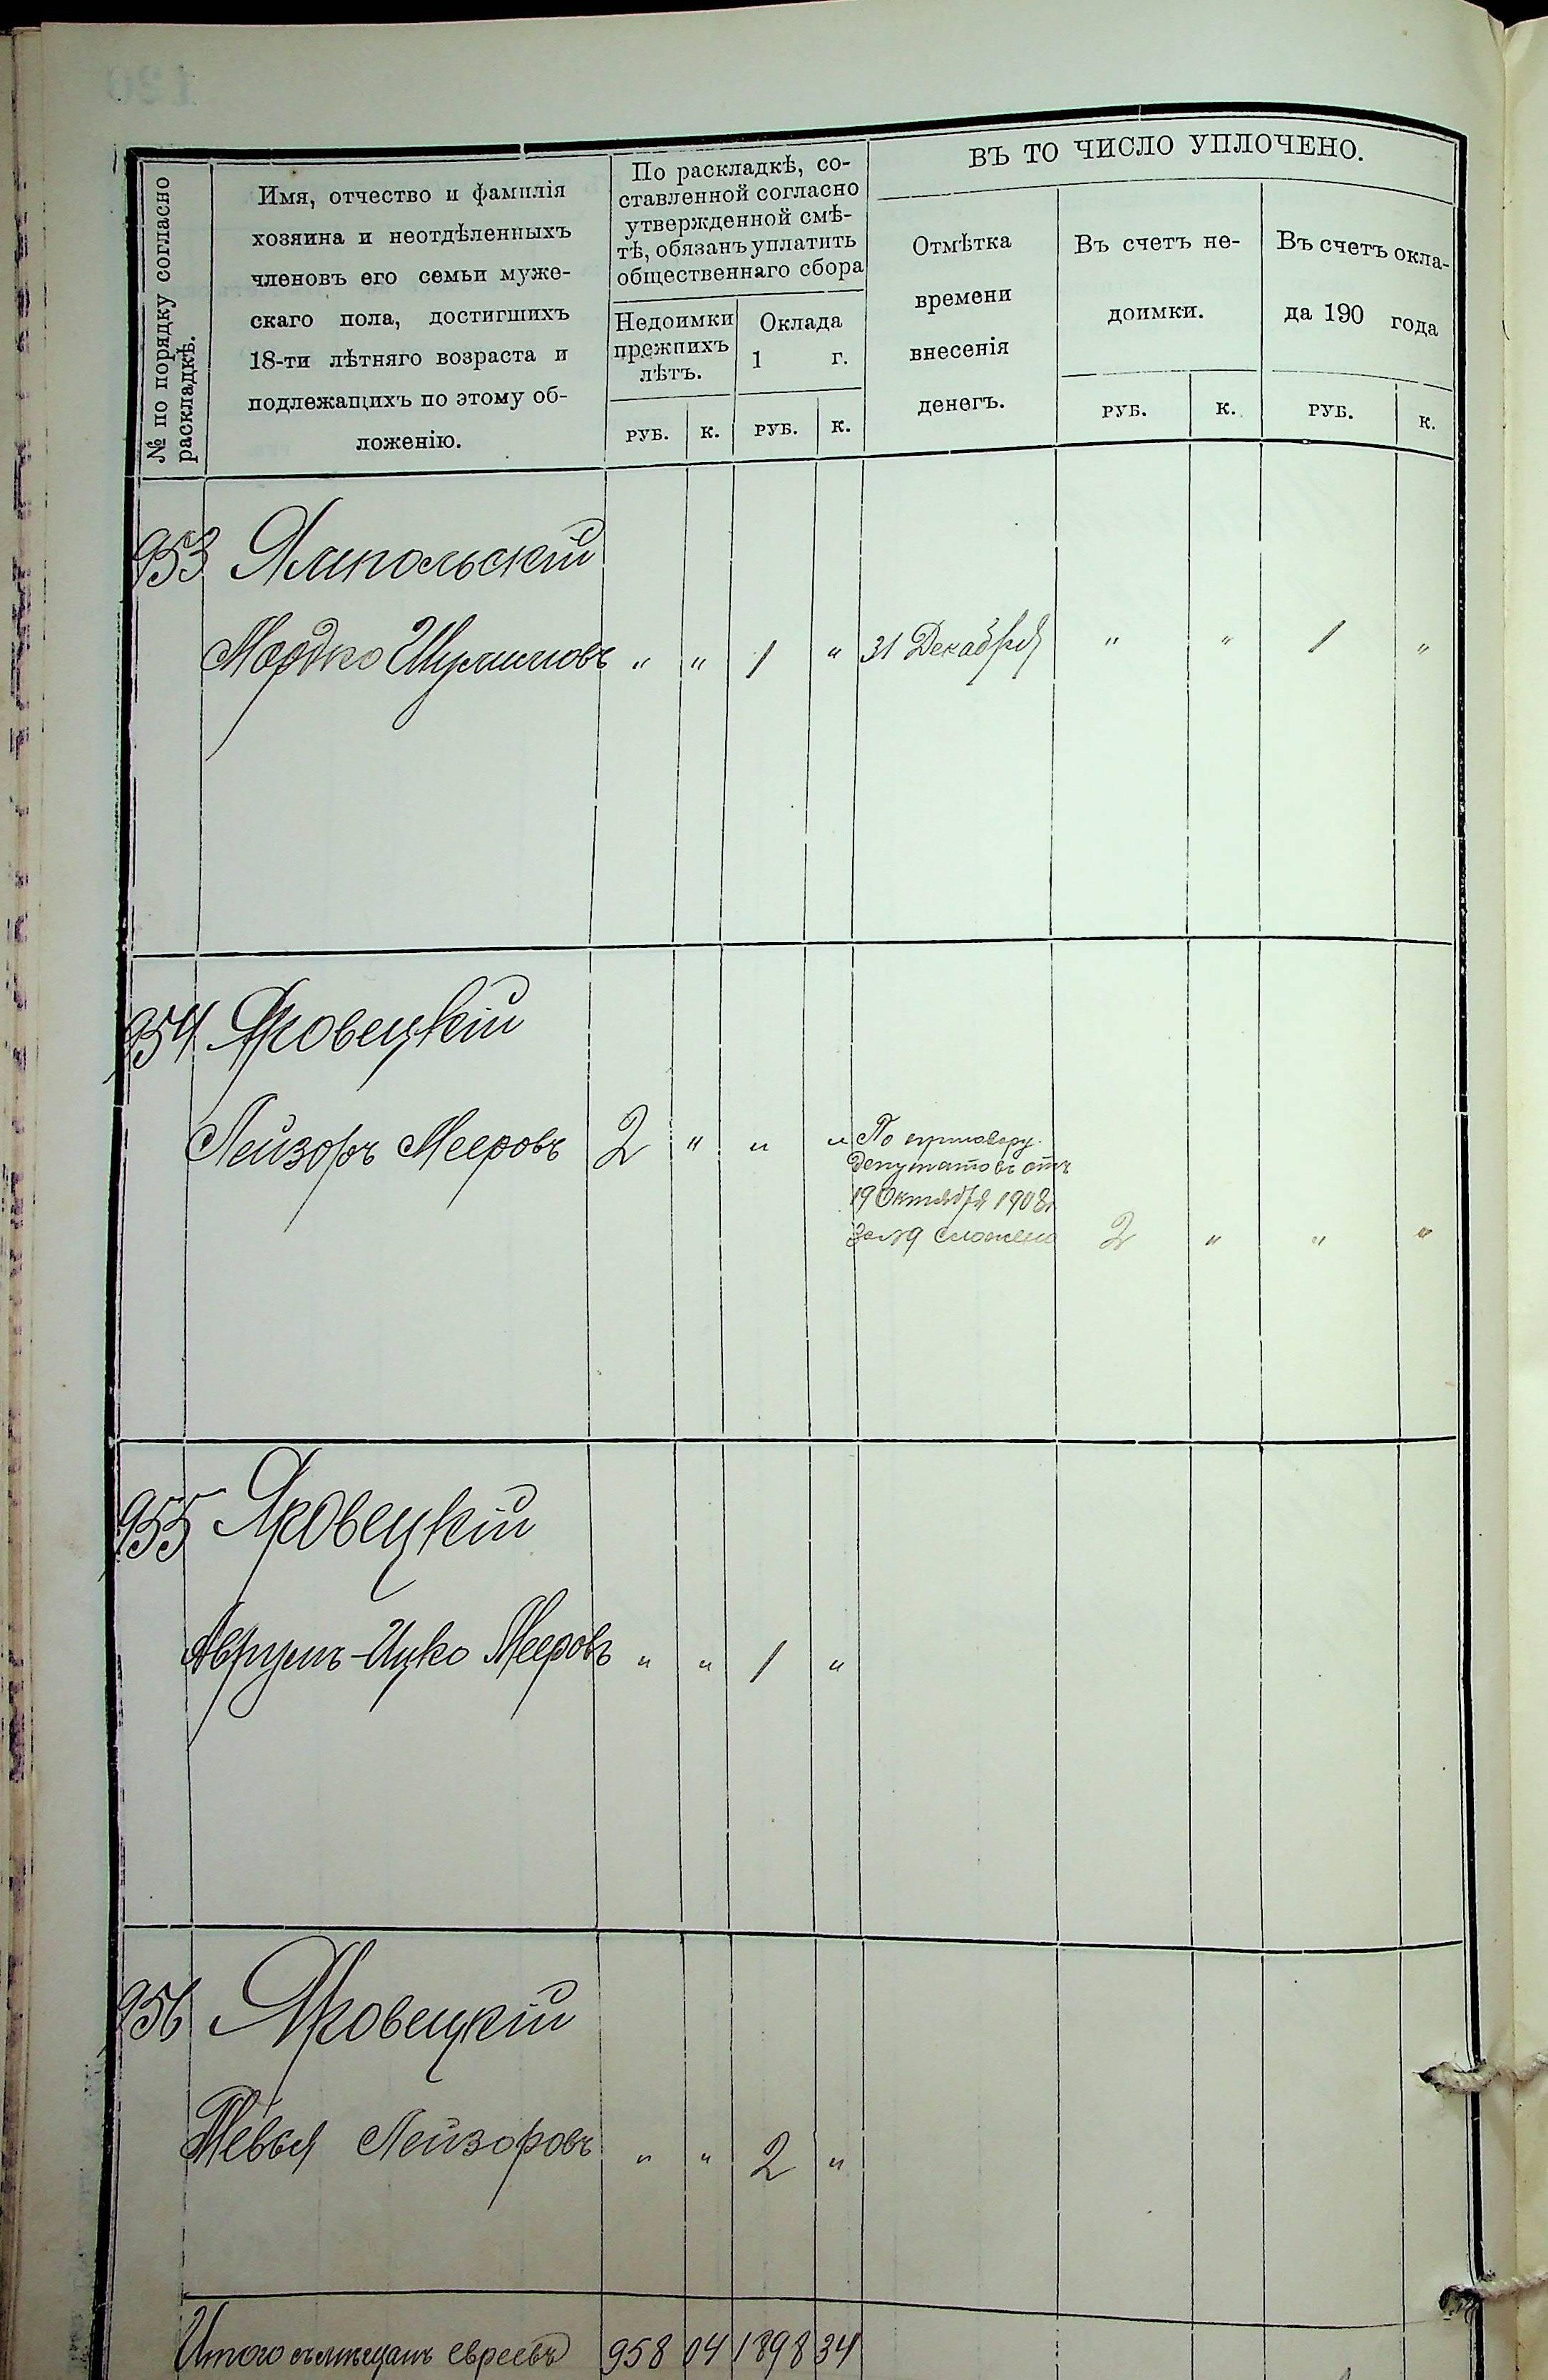 № по порядку согласно
раскладкѣ.
Имя, отчество и фамилія
хозяина и неотдѣленныхъ
членовъ его семьи муже-
скаго пола, достигшихъ
18-ти лѣтняго возраста и
подлежащихъ по этому об-
ложенію.
По раскладкѣ, со-
ставленной согласно
утвержденной смѣ-
тѣ, обязанъ уплатить
общественнаго сбора
Недоимки
прежнихъ
лѣтъ.
Оклада
1 г.
РУБ. К. РУБ. К.
ВЪ ТО ЧИСЛО УПЛОЧЕНО.
Отмѣтка
времени
внесенія
денегъ.
Въ счетъ не-
доимки.
Въ счетъ окла-
да 190 года
РУБ. К. РУБ. К.
953 Ямпольскій
Мордко Шулимовъ " " 1 " 31 Декабря " " 1 "
954 Яровецкій
Лейзоръ Мееровъ 2 " " " По приговору
депутатовъ отъ
19 Октября 1908 г
за № 9 сложено 2 " " "
955 Яровецкій
Аврумъ-Ицко Мееровъ " " 1 "
956 Яровецкій
Тевья Лейзоровъ " " 2 "
Итого съ мѣщанъ евреевъ 958 04 1898 34